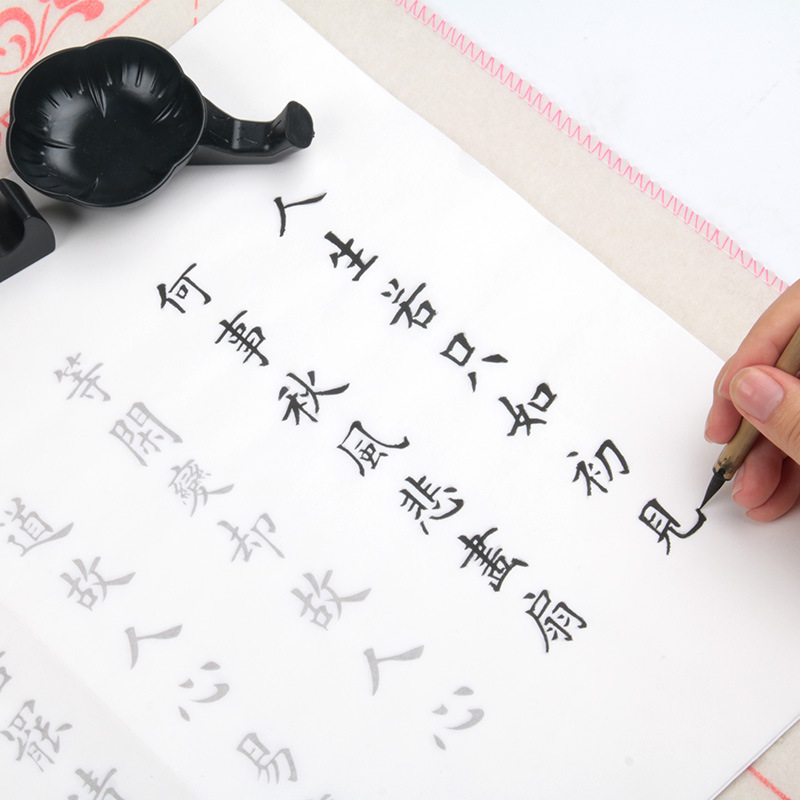 人生若只如初見
何事秋風悲畫扇
等閑變却故人心
道故人心易
罷清